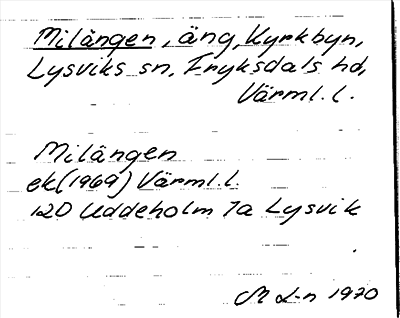 Milängen, äng, Kyrkbyn,
Lysviks sn, Fryksdals hd,
Värml. l.
Milängen
ek (1969) Värml. l.
12D Uddeholm 7a Lysvik
M L-n 1970